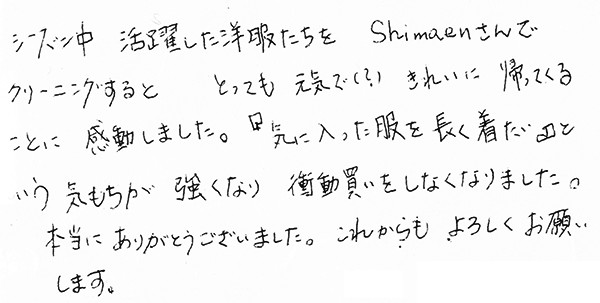 シーズン中 活躍した洋服たちを Shimaenさんで
クリーニングすると とっても 元気で(?) きれいに 帰ってくる
ことに 感動しました。『気に入った服を長く着たい』と
いう 気もちが 強くなり 衝動買いをしなくなりました。
本当に ありがとうございました。これからも よろしくお願い
します。